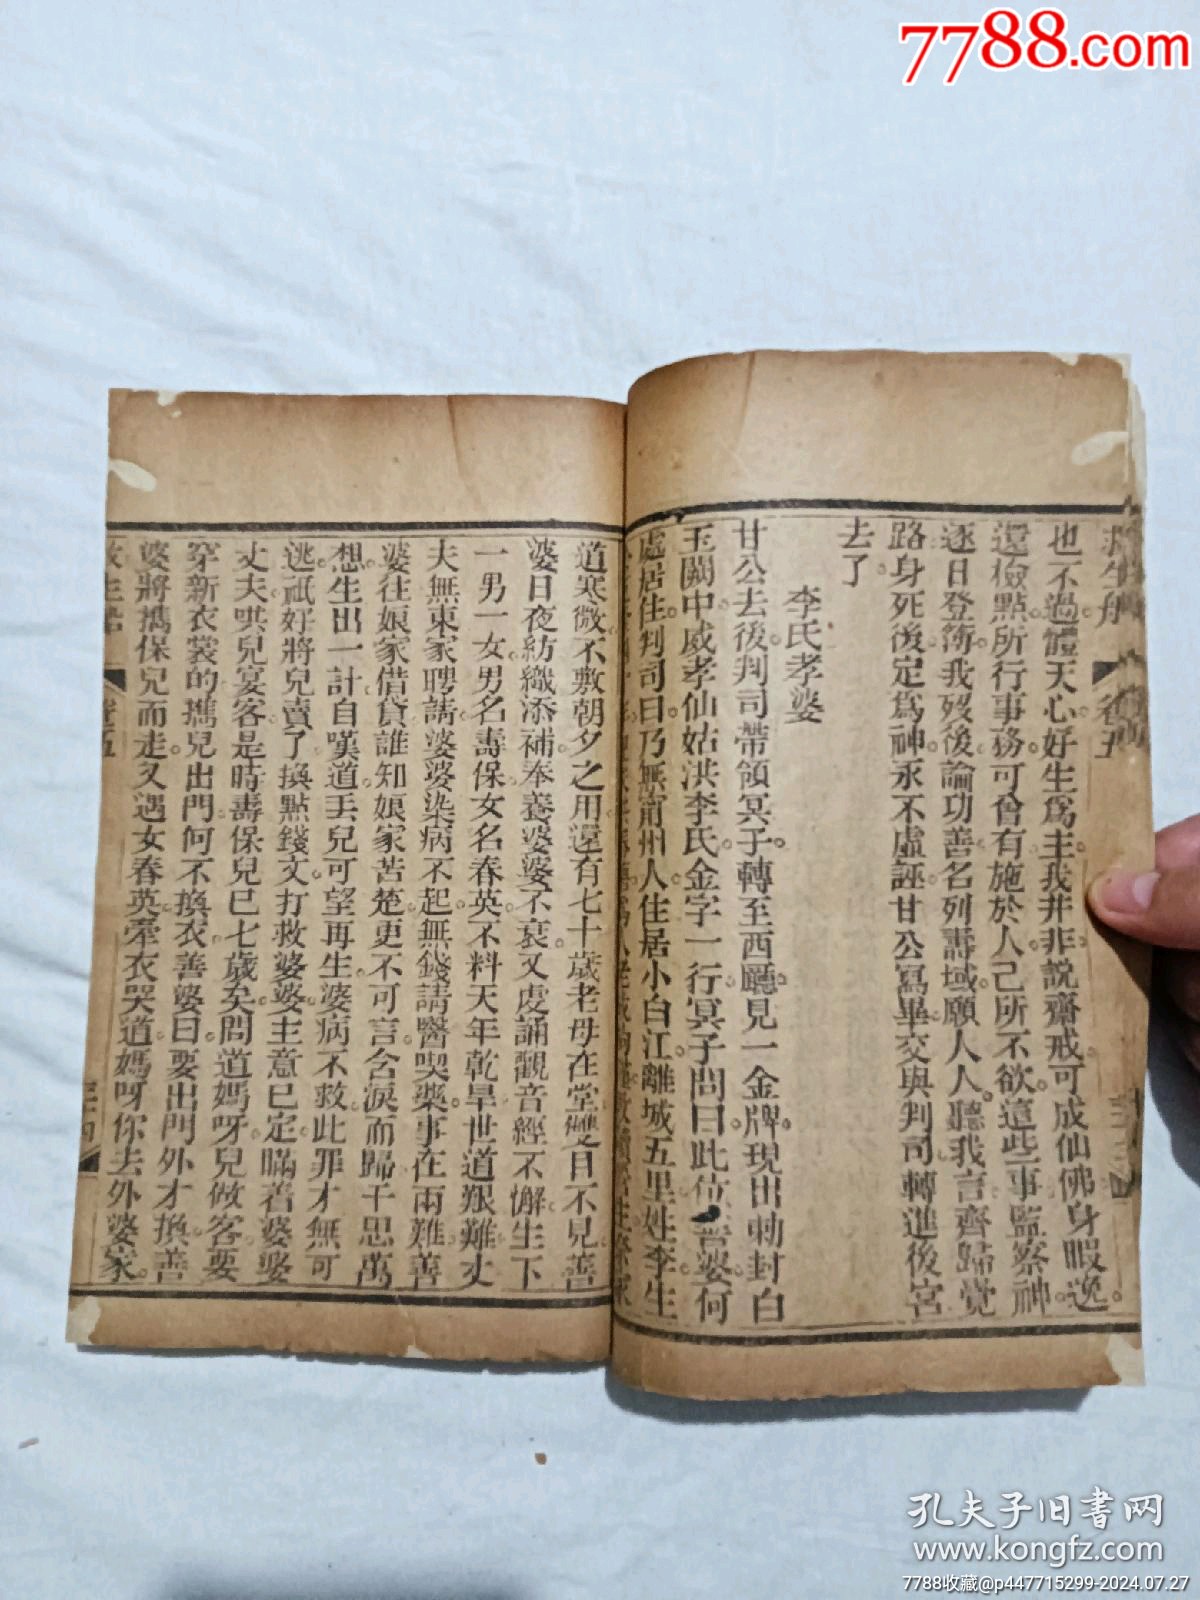 7788.com
救生船 卷五
也不過體天心好生爲主我非非說齋戒可成仙佛身暇逸
還檢點所行事務可曾有施於人己所不欲這些事監察神
逐日登簿我歿後論功善名列壽域願人人聽我言齊歸覺
路身死後定爲神永不虛誣甘公寫畢交與判司轉進後宮
去了
李氏孝婆
甘公去後判司帶領冥子轉至西廳見一金牌現出勅封白
玉闕中威孝仙姑洪李氏金字一行冥子問曰此位善婆何
處居住判司曰乃無甯州人住居小白江離城五里姓李生
道寒微不敷朝夕之用還有七十歲老母在堂雙目不見善
婆日夜紡織添補奉養婆婆不衰又虔誦觀音經不懈生下
一男一女男名壽保女名春英不料天年乾旱世道艱難丈
夫無東家聘請婆婆染病不起無錢請醫喫藥事在兩難善
婆往娘家借貸誰知娘家苦楚更不可言含淚而歸千思萬
想生出一計自嘆道丟兒可望再生婆病不救此罪才無可
逃祇好將兒賣了換點錢文打救婆婆主意已定瞞着婆婆
丈夫哄兒宴客是時壽保兒已七歲矣問道媽呀兒做客要
穿新衣裳的攜兒出門何不換衣善婆曰要出門外才換善
婆將攜保兒而走又遇女春英牽衣哭道媽呀你去外婆家
救生船 卷五 三十四
孔夫子旧书网
www.kongfz.com
7788收藏@p447715299-2024.07.27